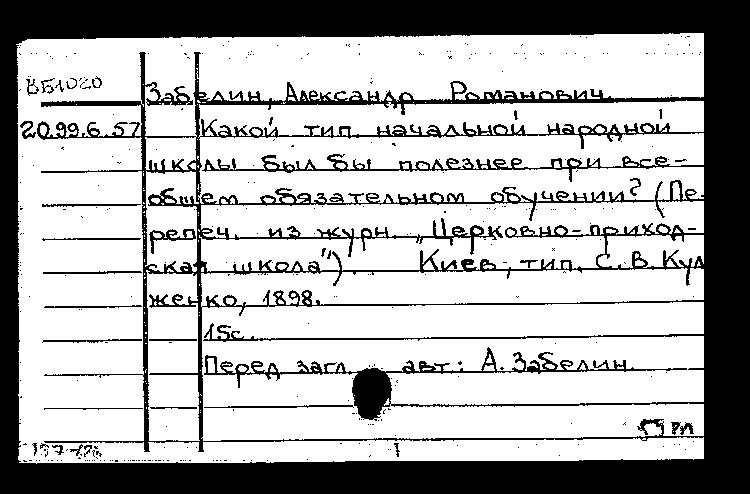 ВБ1020
Забелин, Александр Романович.
20.99.6.57 Какой тип начальной народной
школы был бы полезнее при все-
общем обязательном обучении? (Пе-
репеч. из журн. „Церковно-приход-
ская школа"). Киев, тип. С.В. Куль
женко, 1898.
15с.
Перед загл. авт.: А. Забелин.